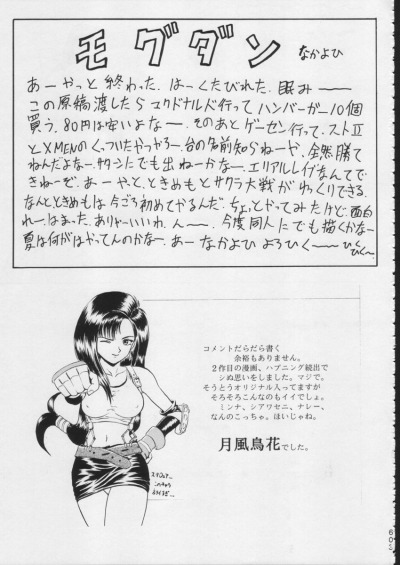 モグダン なかよひ
あーやっと終わった。はーくたびれた。眠みー
この原稿渡したらマクドナルド行ってハンバーガー10個
買う。80円は安いよなー。そのあとゲーセン行って、ストⅡ
とXMENのくっついたやつやろー。台の名前知らねーや。全然勝て
ねんだよなー。サターンにでも出ねーかなー。エリアルレイブなんてで
きねーぞ。あーやっと、ときめもとサクラ大戦がゆっくりできる。
なんとときめもは今ごろ初めてやるんだ。ちょっとやってみたけど面白
れー。はまった。ありゃーいいわ。んー。今度同人にでも描くかなー
夏は何がはやってんのかなー。あーなかよひよろひくーひくひくー
コメントだらだら書く
余裕もありません。
2作目の漫画、ハプニング続出で
シぬ思いをしました。マジで。
そうとうオリジナル入ってますが
そろそろこんなのもイイでしょ。
ミンナ、シアワセニ、ナレー、
なんのこっちゃ。ほいじゃね。
月風鳥花でした。
60